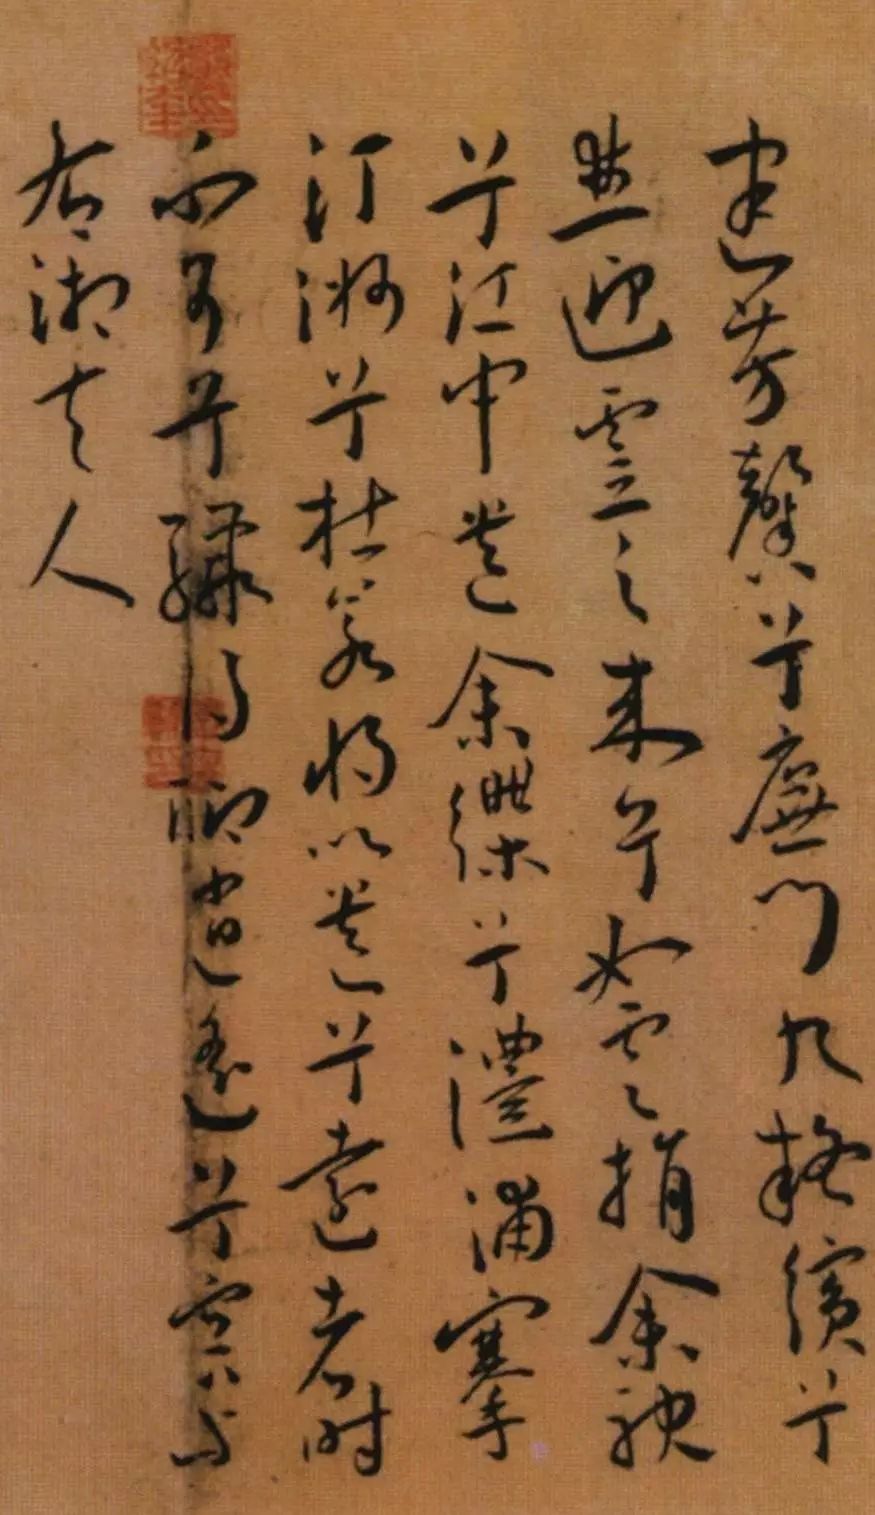 建芳馨兮廡門九疑繽兮
並迎靈之來兮如雲捐余袂
兮江中遺余褋兮澧浦搴
汀洲兮杜若將以遺兮遠者時
不可兮驟得聊逍遙兮容與
右湘夫人